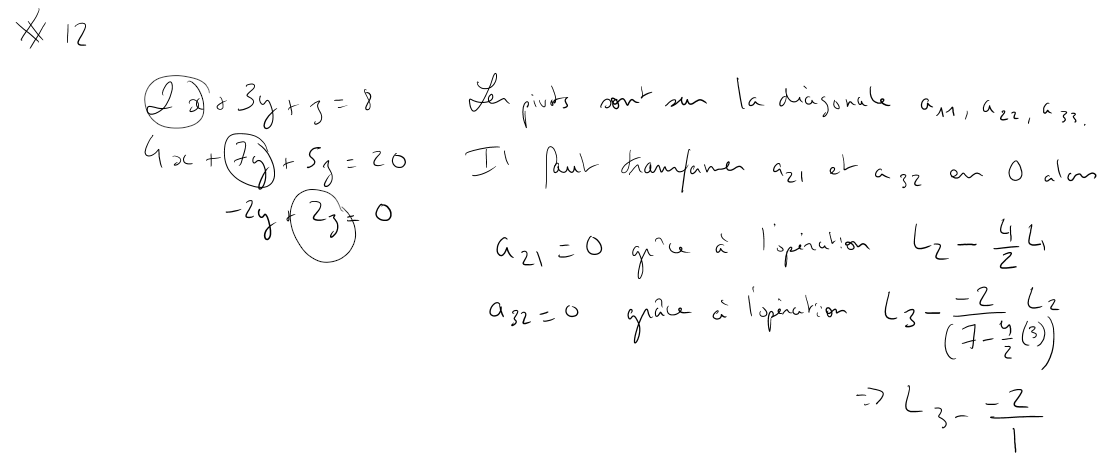 ※ 12
2x + 3y + z = 8
4x + 7y + 5z = 20
-2y + 2z = 0
Les pivots sont sur la diagonale a₁₁, a₂₂, a₃₃.
Il faut transformer a₂₁ et a₃₂ en 0 alors
a₂₁ = 0 grâce à l'opération L₂ - 4/2 L₁
a₃₂ = 0 grâce à l'opération L₃ - -2/(7 - 4/2 (3)) L₂
=> L₃ - -2/1